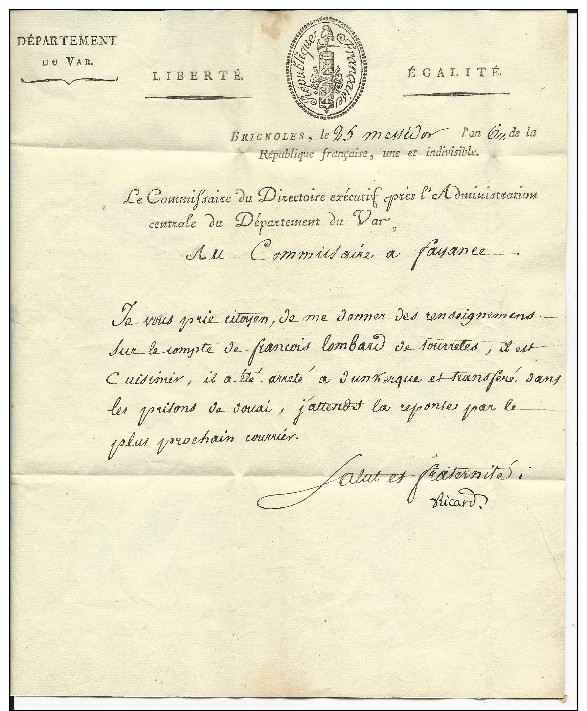 DÉPARTEMENT
DU VAR.
LIBERTÉ.
République Française
ÉGALITÉ.
BRIGNOLES, le 25 messidor l'an 6e de la
République française, une et indivisible.
Le Commissaire du Directoire exécutif près l'Administration
centrale du Département du Var,
Au Commissaire a fayance
Je vous prie citoyen, de me donner des renseignemens
sur le compte de francois lombard de tourretes, il est
Cuisinier, il a été arreté a dunkerque et transferé dans
les prisons de douai, j'attends la reponse par le
plus prochain courrier.
Salut et fraternité.
Ricard.